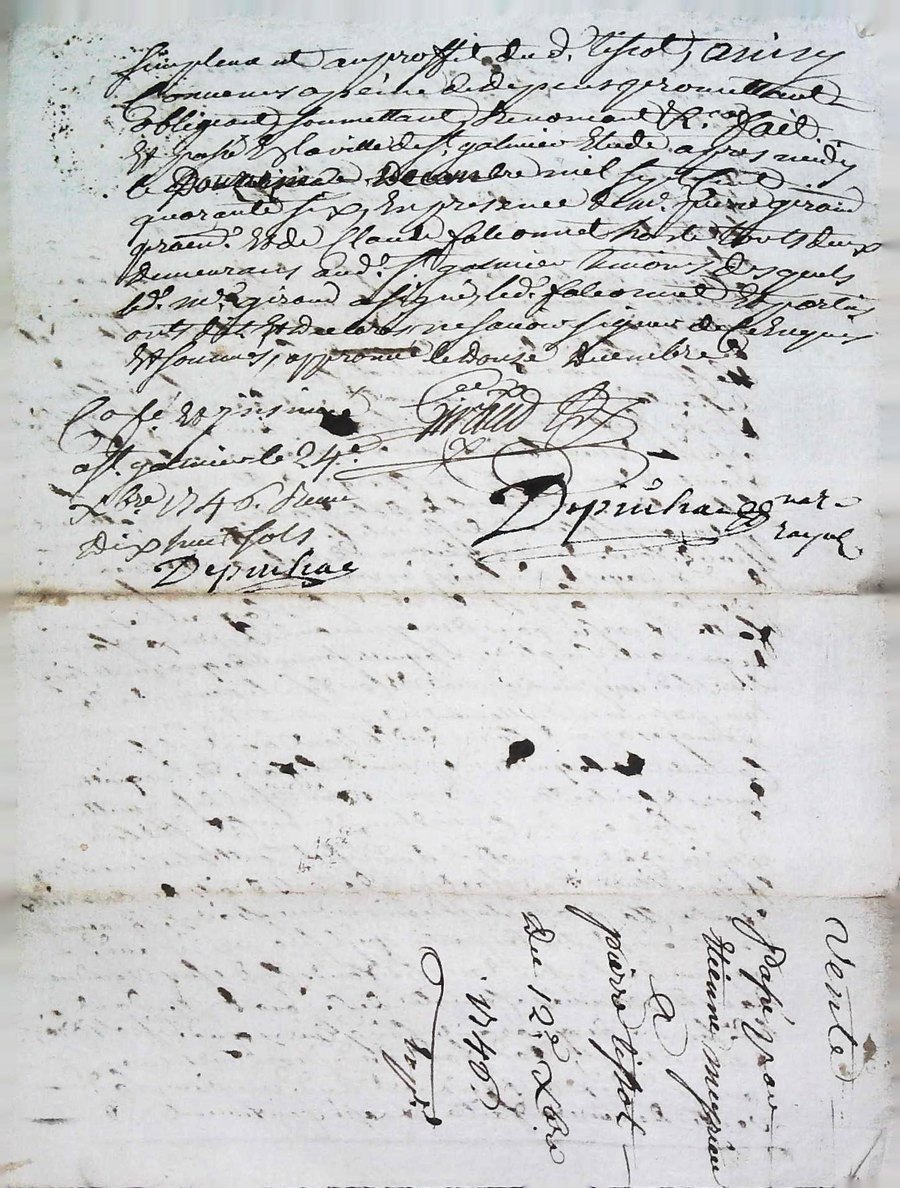 simplement au proffit du d. tissot, ainsy
Convenus a peine de depens promettant
obligeant soumettant Renoncant &c. fait
Et passé En la ville de st. galmier Etude apres midy
le Douzieme Decembre mil sept cent
quarante six, En presence de me. pierre giraud
praen. Et de Claude falconnet hoste touts deux
demeurans aud. st. galmier temoins Desquels
led. me. giraud a signé, led. falconnet Et parties
ont dit Et declaré ne sçavoir signer de ce Enquis
Et sommés, approuvé le douze Decembre
giraud
Depinhac nore
royal
Co/lé Et
a st. galmier le 24e.
Xbre 1746. Receu
dix huit sols
Depinhac
Vente
passé par
Etienne
A
pierre tissot
Du 12e. Xbre
1746.